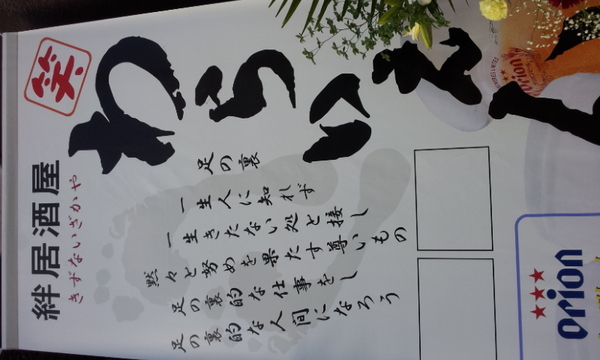 笑
わらいえ
絆居酒屋
きずないざかや
足の裏
一生人に知れず
一生きたない処と接し
黙々と努めを果たす尊いもの
足の裏的な仕事をし
足の裏的な人間になろう
Orion
Orion